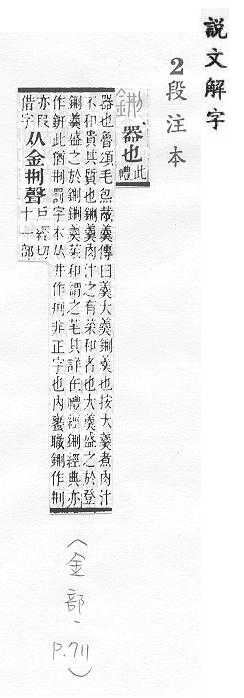 說文解字
2段注本
鉶 器也 此禮
器也魯頌毛炰胾羹傳曰羹大羹鉶羹也按大羹煮肉汁
不和貴其質也鉶羹肉汁之有菜和者也大羹盛之於登
鉶羹盛之於鉶鉶羹菜和謂之芼其詳在禮經鉶經典亦
作鈃此猶㓝罰字不从井作刑非正字也內饔職鉶作㓝
亦叚借字 从金㓝聲 戶經切十一部
(金部, P.711)